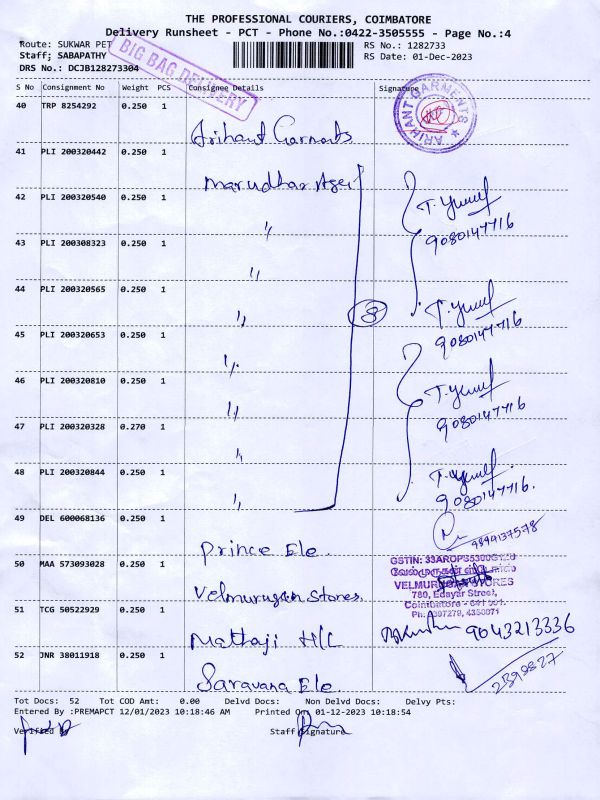 THE PROFESSIONAL COURIERS, COIMBATORE
Delivery Runsheet - PCT - Phone No.:0422-3505555 - Page No.:4
Route: SUKWAR PET
RS No.: 1282733
Staff; SABAPATHY
RS Date: 01-Dec-2023
DRS No.: DCJB128273304
BIG BAG DELIVERY
S No Consignment No Weight PCS Consignee Details Signature
40 TRP 8254292 0.250 1
Arihant Garments
ARIHANT GARMENTS
41 PLI 200320442 0.250 1
Marudhar Agen
42 PLI 200320540 0.250 1
〃
T. Yusuf
9080147716
43 PLI 200308323 0.250 1
〃
44 PLI 200320565 0.250 1
〃
8
T. Yusuf
9080147716
45 PLI 200320653 0.250 1
〃
46 PLI 200320810 0.250 1
〃
T. Yusuf
9080147716
47 PLI 200320328 0.270 1
〃
48 PLI 200320844 0.250 1
〃
T. Yusuf
9080147716.
49 DEL 600068136 0.250 1
Prince Ele
9894137578
50 MAA 573093028 0.250 1
Velmurugan Stores.
GSTIN: 33AROPS5300G1Z0
வேல்முருகன் ஸ்டோர்ஸ்
VELMURUGAN STORES
780, Edayar Street,
Coimbatore - 641 001.
Ph: 2397279, 4350071
51 TCG 50522929 0.250 1
Mathaji H/C
9043213336
52 JNR 38011918 0.250 1
Saravana Ele.
2398827
Tot Docs: 52 Tot COD Amt: 0.00 Delvd Docs: Non Delvd Docs: Delvy Pts:
Entered By :PREMAPCT 12/01/2023 10:18:46 AM Printed On 01-12-2023 10:18:54
Verified By
Staff Signature